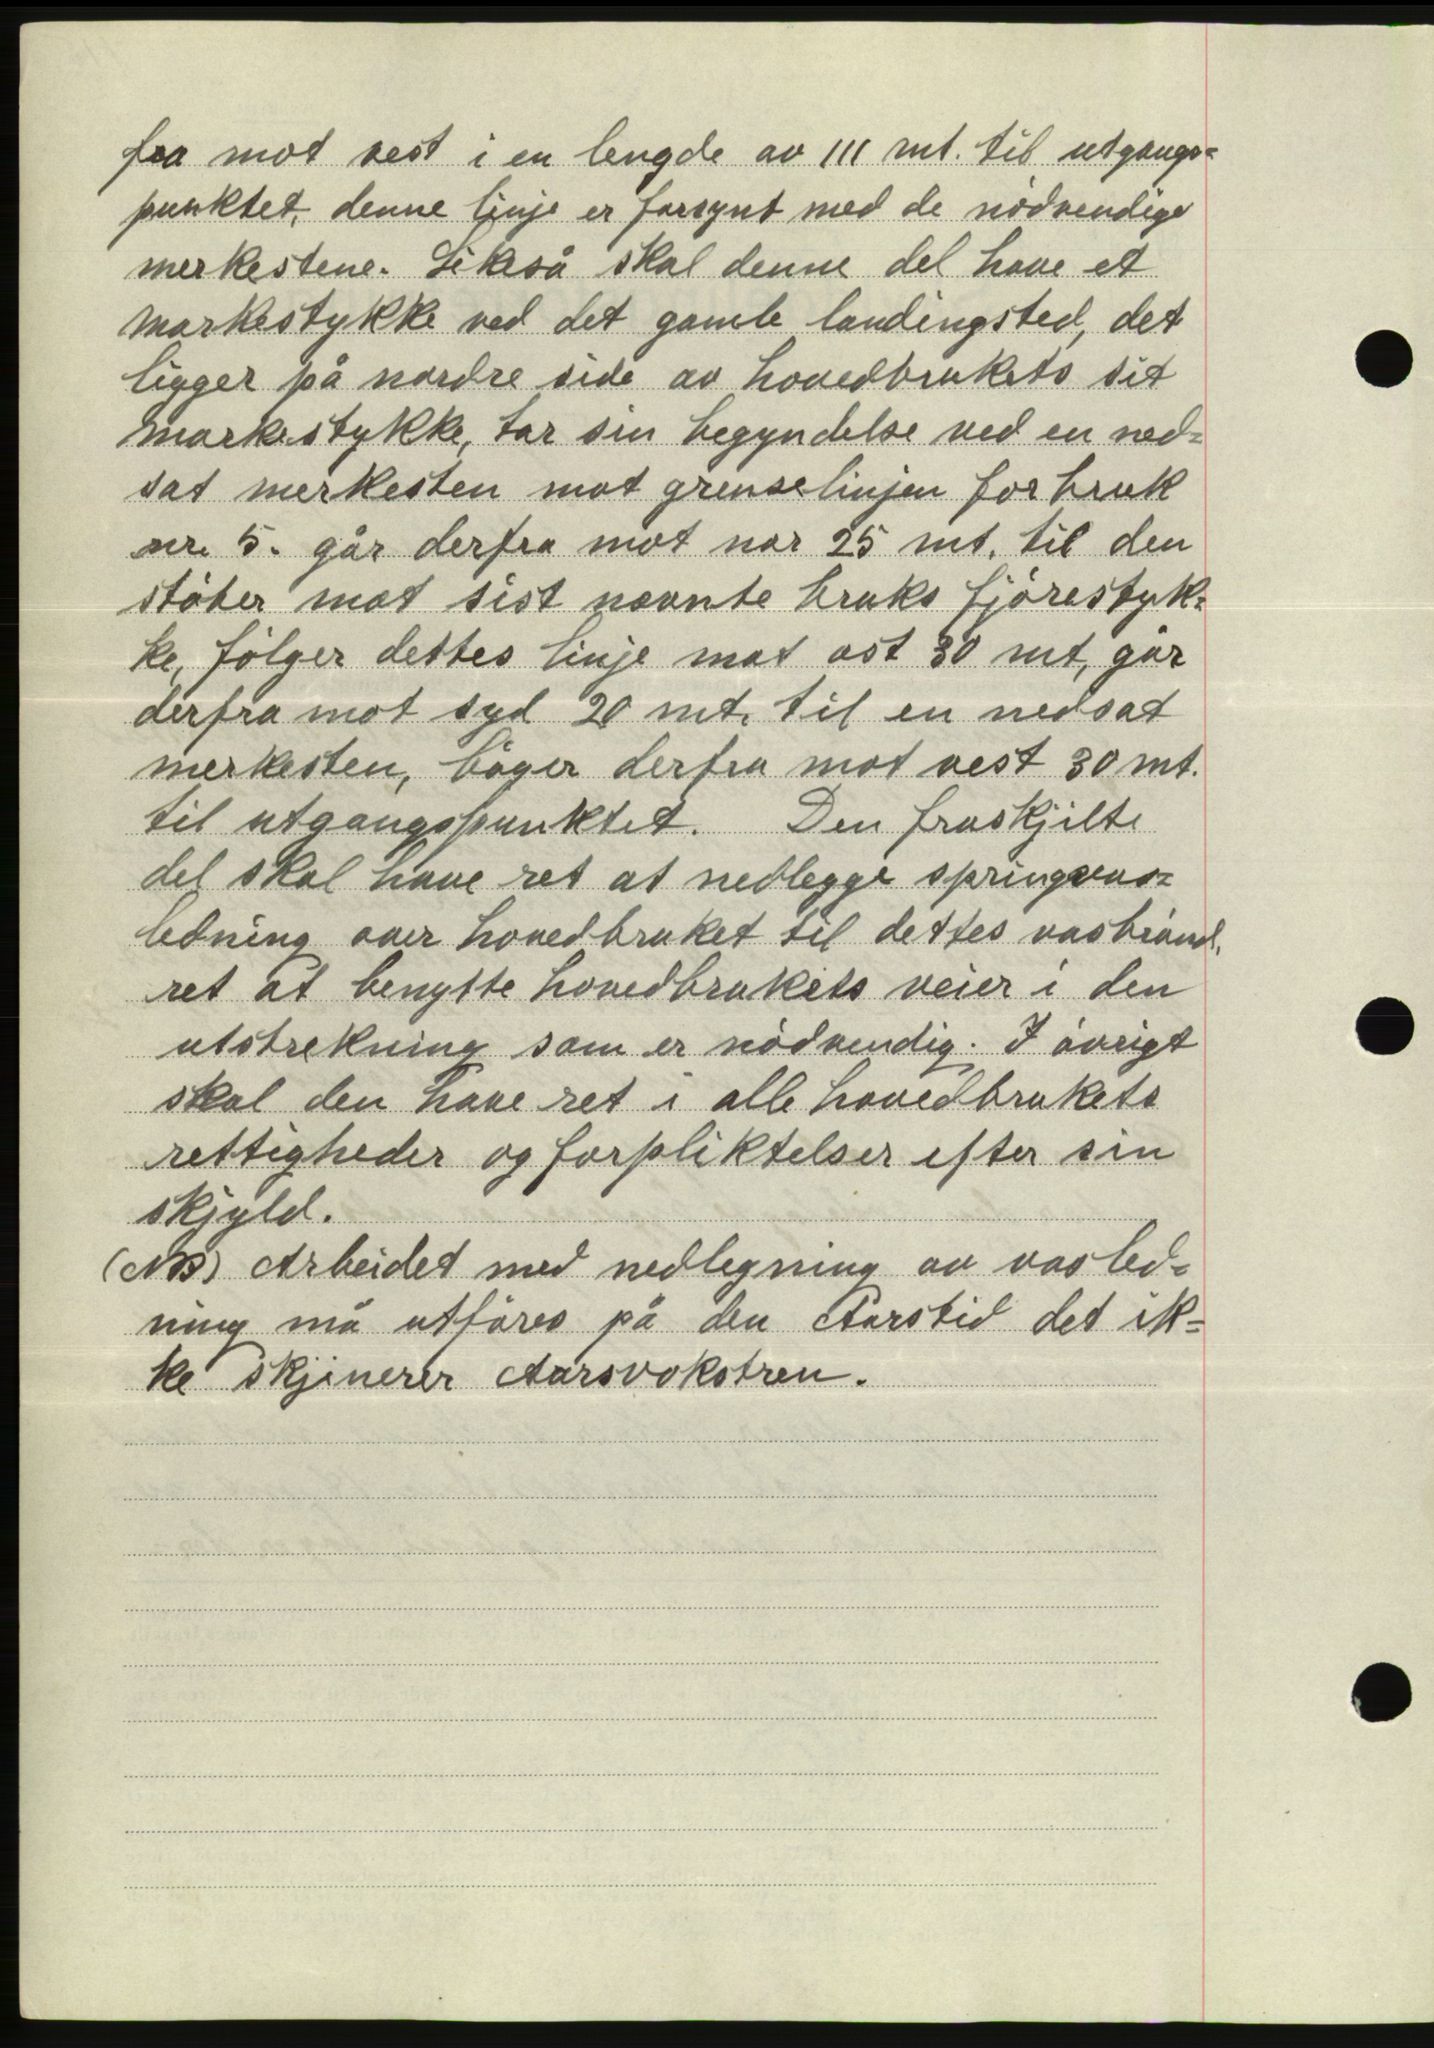 fra mot vest i en lengde av 111 mt. til utgangs=
punktet, denne linje er forsynt med de nödvendige
merkestene. Likeså skal denne del have et
markestykke ved det gamle landingsted, det
ligger på nordre side av hovedbrukets sit
markestykke, tar sin begyndelse ved en ned=
sat merkesten mot grenselinjen for bruk
nr. 5. går derfra mot nor 25 mt. til den
stöter mot sist nævnte bruks fjörestyk=
ke, fölger dettes linje mot ost 30 mt, går
derfra mot syd 20 mt. til en nedsat
merkesten, böger derfra mot vest 30 mt.
til utgangspunktet. Den fraskjilte
del skal have ret at nedlegge springvas=
ledning over hovedbruket til dettes vasbrönd,
ret at benytte hovedbrukets veier i den
utstrekning som er nödvendig. I övrigt
skal den have ret i alle hovedbrukets
rettigheder og forpliktelser efter sin
skjyld.
(NB) Arbeidet med nedlegning av vasled=
ning må utföres på den Aarstid det ik=
ke skjinerer Aarsvokstren.